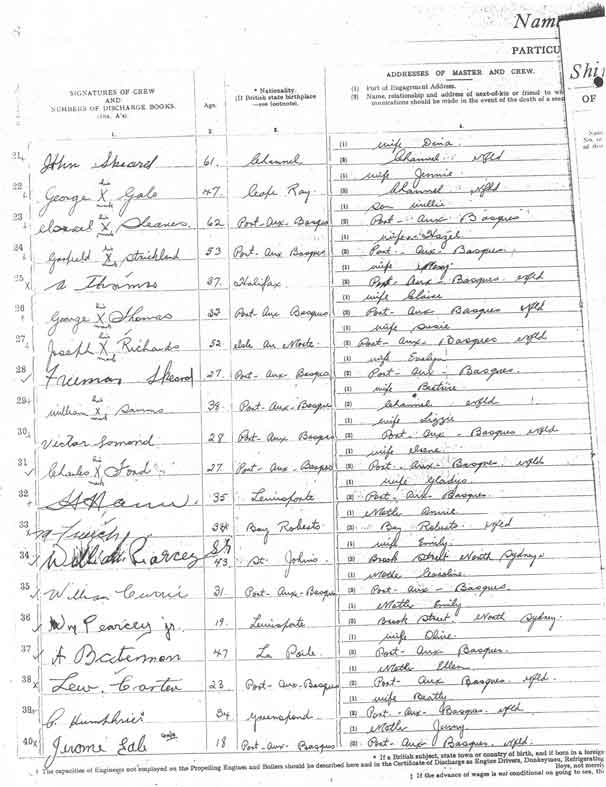 Nam
PARTICU
Shi
OF
SIGNATURES OF CREW
AND
NUMBERS OF DISCHARGE BOOKS.
(Ins. A's)
Age.
* Nationality
(If British state birthplace
—see footnote).
ADDRESSES OF MASTER AND CREW.
(1) Port of Engagement Address.
(2) Name, relationship and address of next-of-kin or friend to wh
munications should be made in the event of the death of a sea
1. 2. 3. 4.
(1) wife Dina
21 John Skeard 61. Channel (2) Channel nfld
(1) wife Jennie
22 George his X mark Gale 47. Cape Ray (2) Channel nfld
(1) son willie
23 his X mark 62 Port-Aux-Basques (2) Port-Aux Basques
(1) wife Hazel
24 Garfield his X mark Strickland 53 Port-Aux Basques (2) Port-Aux-Basques
(1) wife
25 Thomas 37. Halifax (2) Port Aux-Basques nfld
(1) wife Elaise
26 George his X mark Thomas 33 Port Aux Basques (2) Port-Aux Basques nfld
(1) wife Susie
27 Joseph his X mark Richards 52 Isle Au Morte (2) Port-Aux-Basques nfld
(1) wife Evelyn
28 Freeman Skeard 27. Port-Aux-Basques (2) Port-Aux-Basques.
(1) wife Beatrice
29 William his X mark Samms 39. Port-Aux-Basque (2) Channel nfld
(1) wife Lizzie
30 Victor Lomond 28 Port-Aux Basques (2) Port-Aux-Basques nfld
(1) wife
31 Charles his X mark Ford 27. Port-Aux-Basques (2) Port-Aux-Basques nfld
(1) wife Gladys
32 35 Lewisporte (2) Port-Aux-Basques
(1) Mother Annie
33 34 Bay Roberts (2) Bay Roberts nfld
(1) wife Emily
34 William Pearcey Sr 43 St. Johns (2) Brook Street North Sydney
(1) Mother Caroline
35 William Currie 31. Port-Aux-Basques (2) Port-Aux-Basques.
(1) Mother Emily
36 Wm Pearcey jr. 19. Lewisporte (2) Brook Street. North Sydney.
(1) wife Olive
37 A Bateman 47 La Poile (2) Port-Aux Basques.
(1) Mother Ellen
38 Lew. Carter 23 Port-Aux-Basques (2) Port-Aux Basques nfld.
(1) wife
39 C. Humphries 34 Greenspond (2) Port-Aux-Basques. nfld
(1) Mother Jenny
40 Jerome Gale 18 Port-Aux-Basques (2) Port-Aux Basques. nfld.
* If a British subject, state town or country of birth, and if born in a foreign
† The capacities of Engineers not employed on the Propelling Engines and Boilers should be described here and in the Certificate of Discharge as Engine Drivers, Donkeymen, Refrigerating
Boys, not merely
‡ If the advance of wages is not conditional on going to sea, the